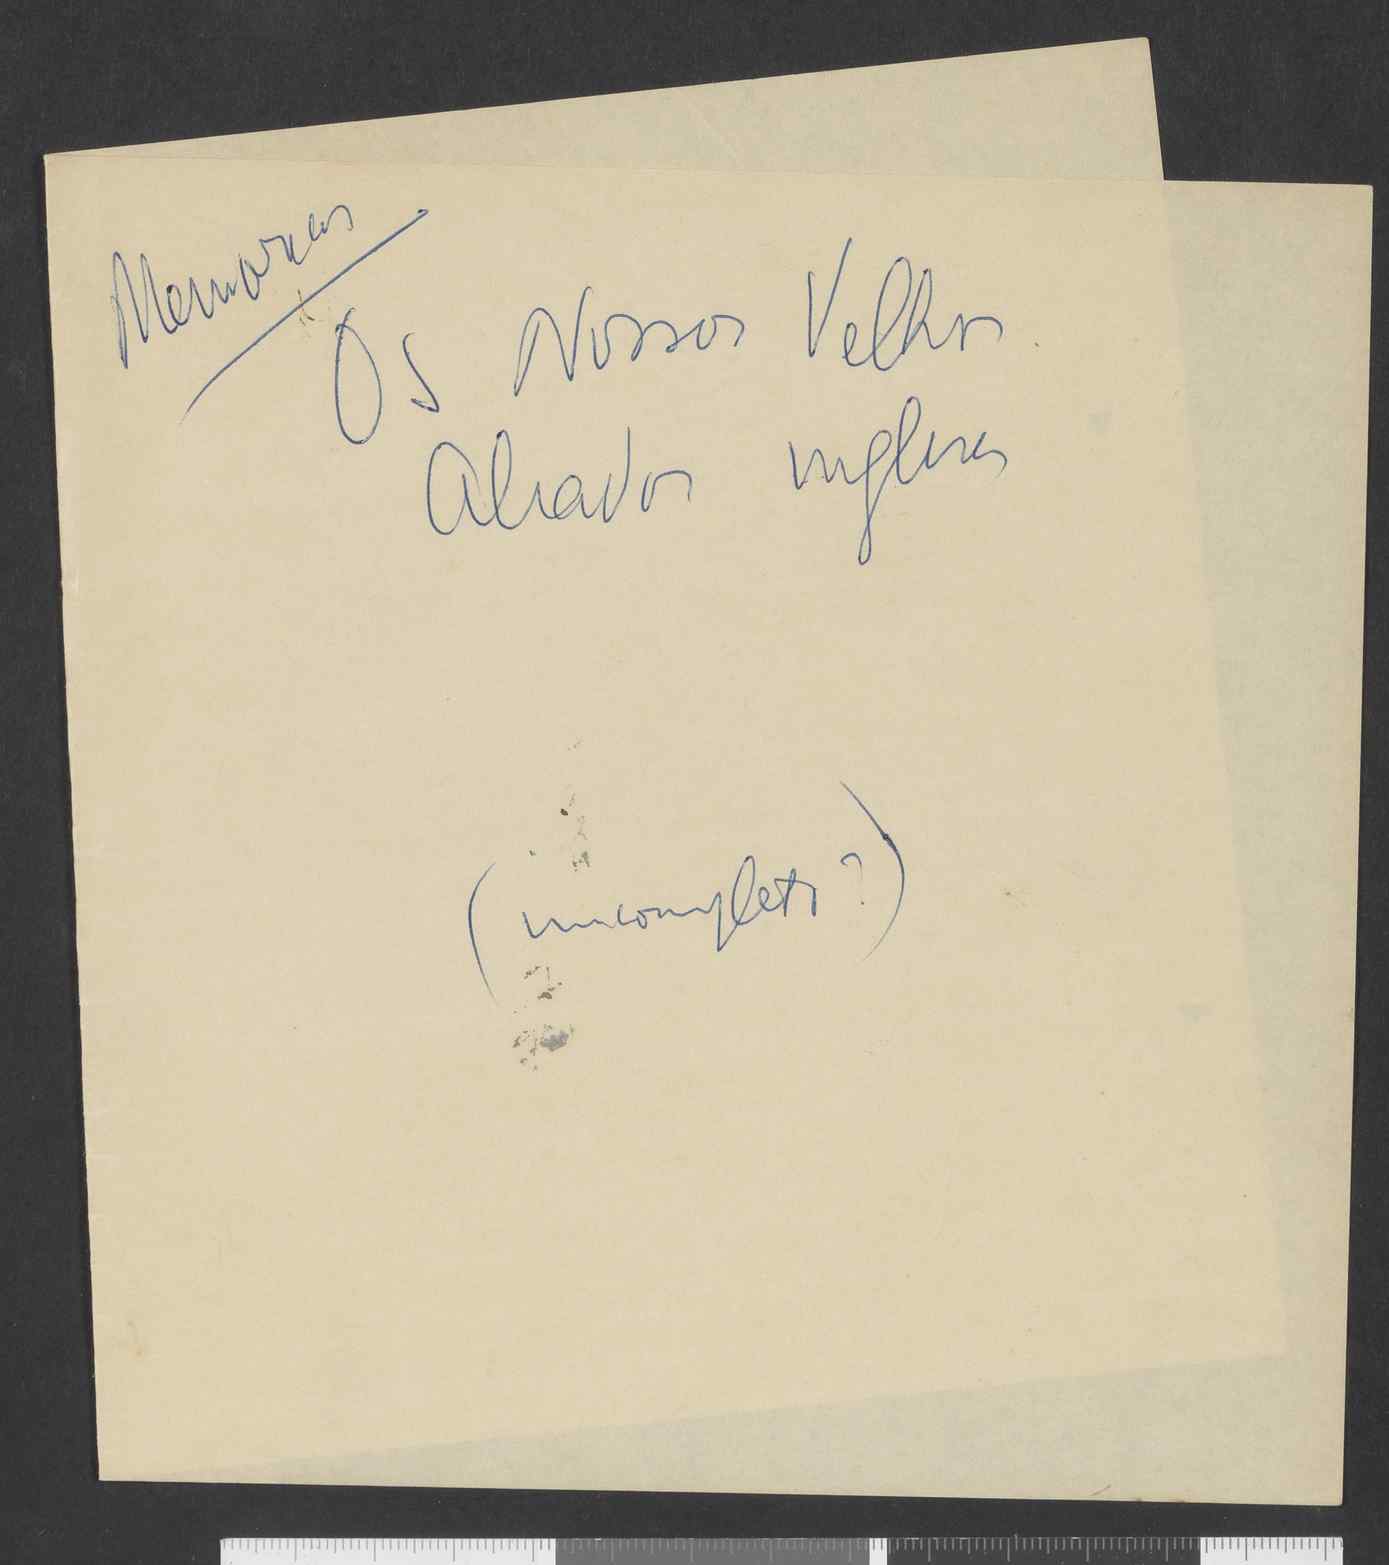 Memorias
Os Nossos Velhos
Aliados ingleses
(incompleto?)